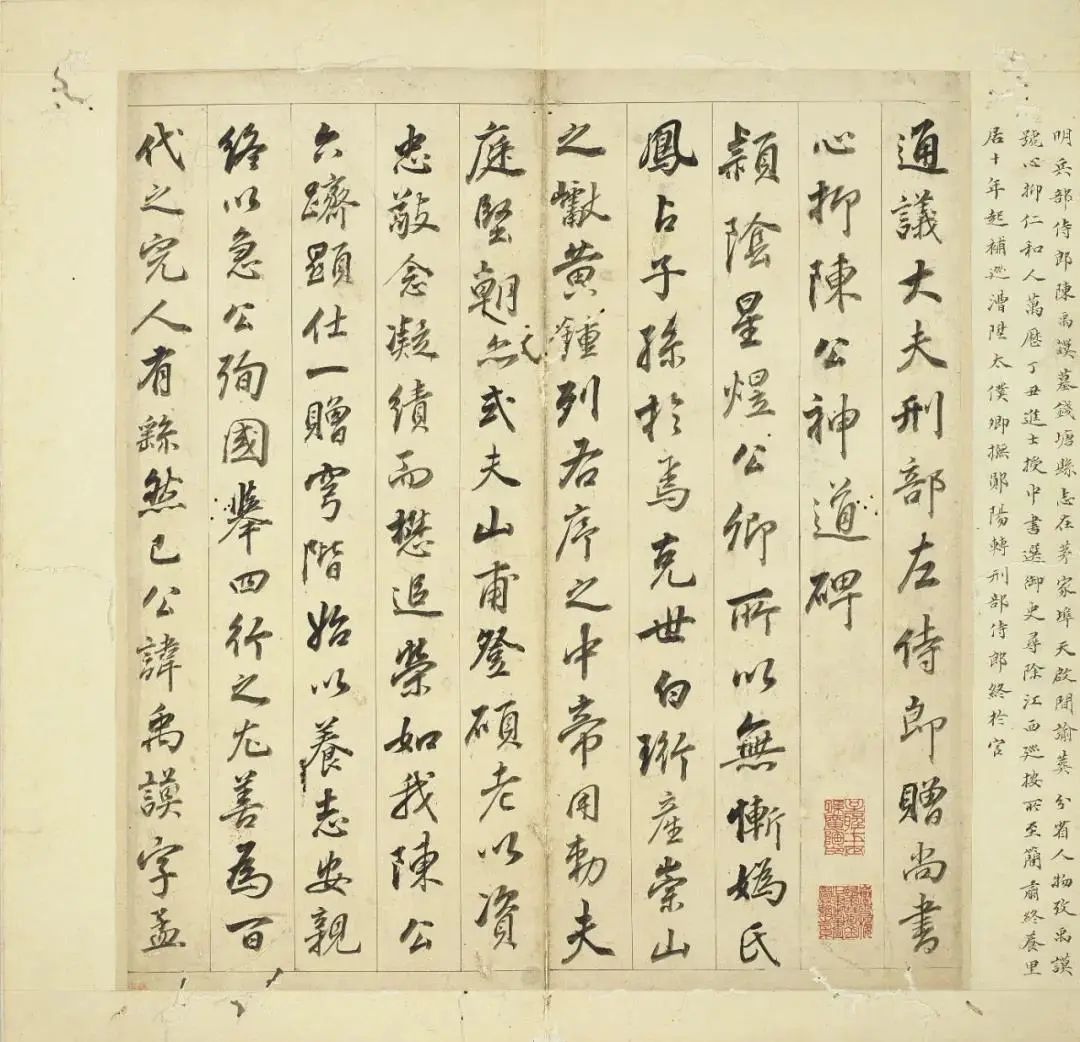 明兵部侍郎陳禹謨墓錢塘縣志在茅家埠天啟間諭葬 分省人物攷禹謨
號心抑仁和人萬歷丁丑進士授中書選御史尋除江西巡按所至簡肅終養里
居十年起補巡漕陞太僕卿撫鄖陽轉刑部侍郎終於官
通議大夫刑部左侍郎贈尚書
心抑陳公神道碑
潁陰星熤公卿所以無慚媯氏
鳳占子孫於焉克世白珩產崇山
之巘黃鍾列君序之中帝用勅夫
庭堅朝亦式夫山甫登碩老以資
之
忠敵念凝績而懋追榮如我陳公
六躋顯仕一贈穹階始以養志安親
終以急公殉國舉四行之尤善為百
代之完人有繇然已公諱禹謨字孟